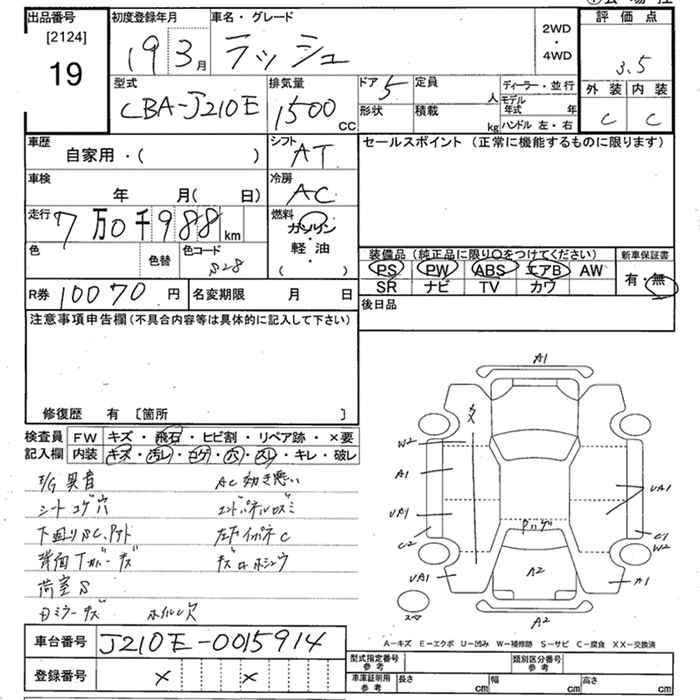 出品番号
[2124]
19
初度登録年月
19 3月
車名・グレード
ラッシュ
2WD
・
4WD
評価点
3.5
外装 内装
C C
型式
CBA-J210E
排気量
1500 CC
ドア 5
形状
定員 人
積載 kg
ディーラー・並行
モデル年式 年
ハンドル 左・右
車歴
自家用・( )
シフト
AT
セールスポイント(正常に機能するものに限ります)
車検
年 月( 日)
冷房
AC
走行
7万0千988km
燃料
ガソリン
・
軽油
・
( )
色
色替
色コード
S28
装備品(純正品に限り○をつけてください)
PS PW ABS エアB AW
SR ナビ TV カワ
新車保証書
有・無
R券 10070円
名変期限 月 日
後日品
注意事項申告欄(不具合内容等は具体的に記入して下さい)
修復歴 有 〔箇所 〕
検査員記入欄
FW キズ・飛石・ヒビ割・リペア跡・×要
内装 キズ・汚レ・コゲ・穴・スレ・キレ・破レ
E/G異音
AC効き悪い
シートコゲ穴
下廻りSC、
背面Tカバーキズ
荷室S
Dミラーキズ
ホイル欠
A1
W2
A1
UA1
C2
UA1
UA1
C1
W2
A1
A2
A2
A-キズ E-エクボ U-凹み W-補修跡 S-サビ C-腐食 XX-交換済
車台番号 J210E-0015914
登録番号 × ×
型式指定番号
参考
類別区分番号
参考
車庫証明用
参考
長さ cm 幅 cm 高さ cm